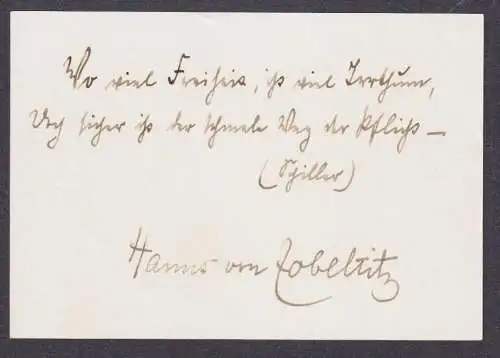 Wo viel Freiheit, ist viel Irrthum,
Doch sicher ist der schmale Weg der Pflicht –
(Schiller)
Hanns von Zobeltitz